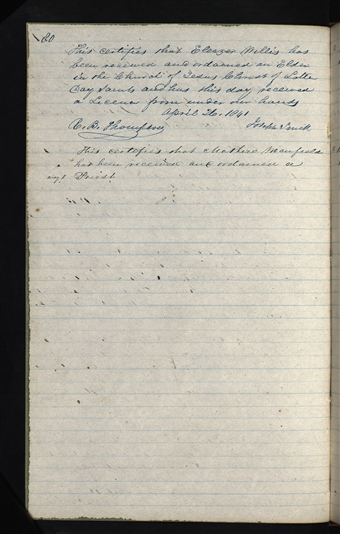 80
This certifies that Eleazer Willis has
been received and ordained an Elder
in the Church of Jesus Christ of Latter
Day Saints and has this day received
a Licence from under our hands
April 26. 1841
R. B. Thompson Joseph Smith
This certifies that Mathew Mansfield
has been received and ordained a
Priest